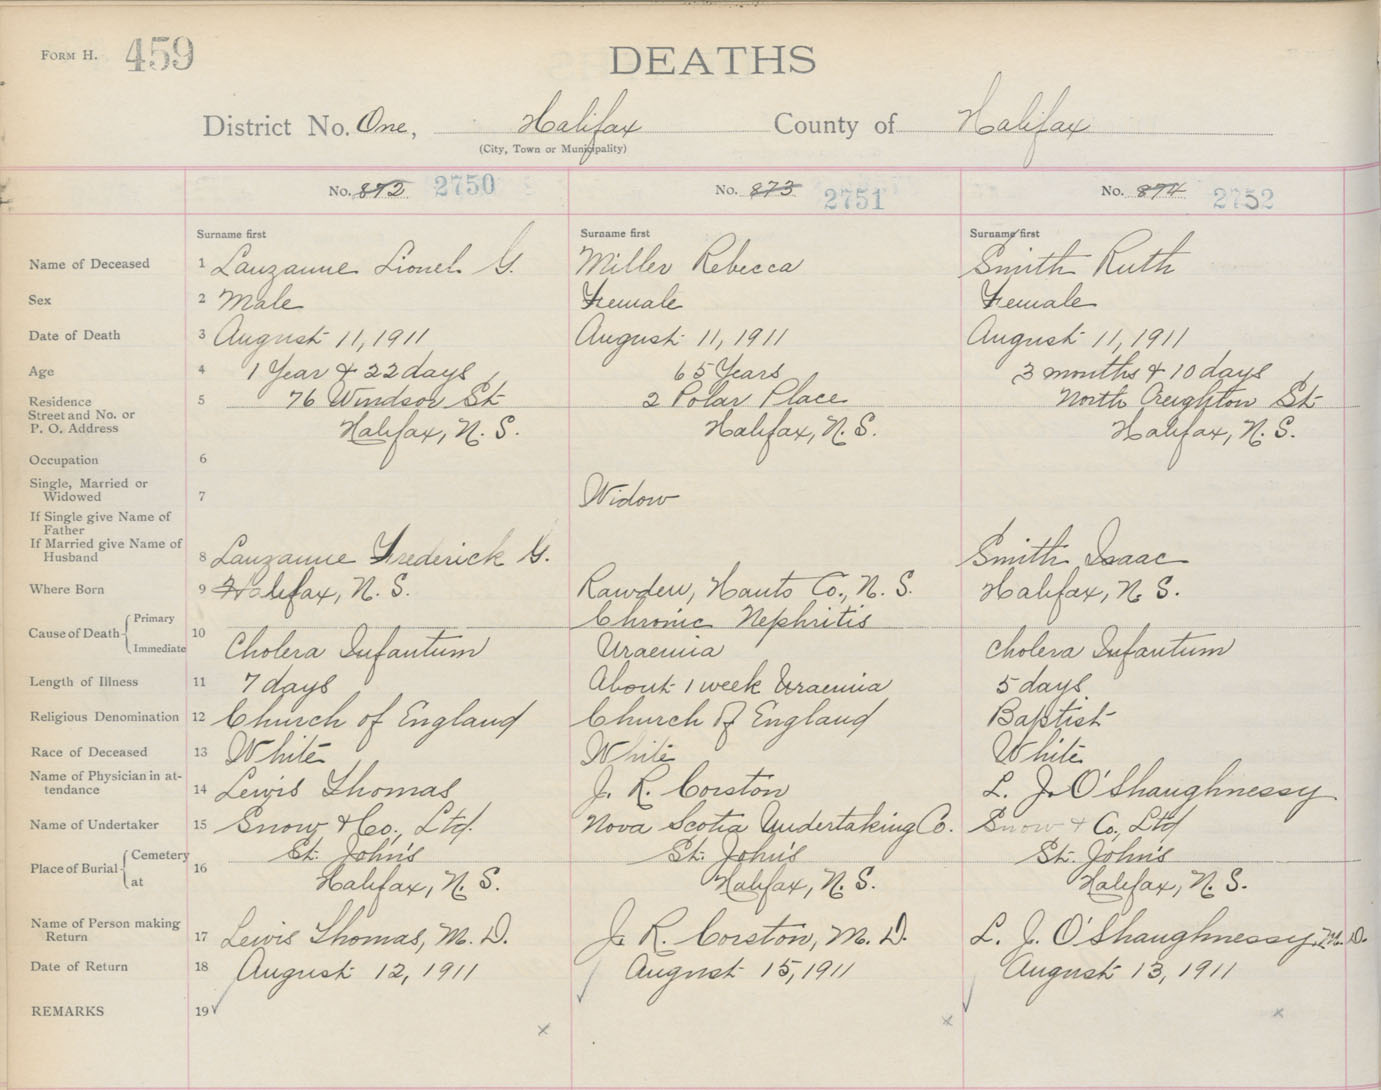 FORM H. 459
DEATHS
District No. One, Halifax County of Halifax
(City, Town or Municipality)
No. 872 2750 No. 873 2751 No. 874 2752
Surname first Surname first Surname first
Name of Deceased 1 Lauzanne Lionel G. Miller Rebecca Smith Ruth
Sex 2 Male Female Female
Date of Death 3 August 11, 1911 August 11, 1911 August 11, 1911
Age 4 1 Year & 22 days 65 Years 3 months & 10 days
Residence 5 76 Windsor St 2 Polar Place North Creighton St
Street and No. or
P. O. Address Halifax, N. S. Halifax, N. S. Halifax, N. S.
Occupation 6
Single, Married or
Widowed 7 Widow
If Single give Name of
Father
If Married give Name of
Husband 8 Lauzanne Frederick G. Smith Isaac
Where Born 9 Halifax, N. S. Rawden, Hants Co., N. S. Halifax, N. S.
Cause of Death Primary 10 Chronic Nephritis
Immediate Cholera Infantum Uraemia Cholera Infantum
Length of Illness 11 7 days About 1 week Uraemia 5 days
Religious Denomination 12 Church of England Church of England Baptist
Race of Deceased 13 White White White
Name of Physician in at-
tendance 14 Lewis Thomas J. R. Corston L. J. O'Shaughnessy
Name of Undertaker 15 Snow & Co., Ltd. Nova Scotia Undertaking Co. Snow & Co., Ltd
Place of Burial Cemetery 16 St. John's St. John's St. John's
at Halifax, N. S. Halifax, N. S. Halifax, N. S.
Name of Person making
Return 17 Lewis Thomas, M. D. J. R. Corston, M. D. L. J. O'Shaughnessy, M. D.
Date of Return 18 August 12, 1911 August 15, 1911 August 13, 1911
REMARKS 19